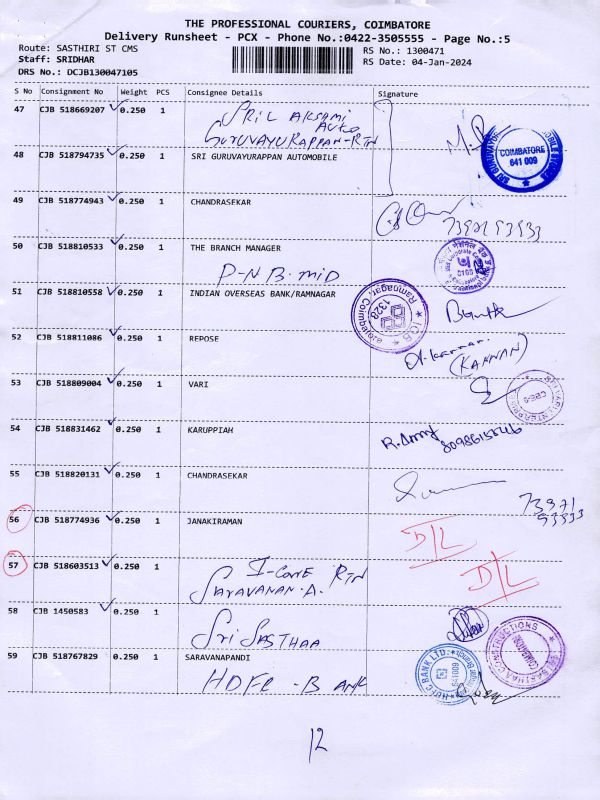 THE PROFESSIONAL COURIERS, COIMBATORE
Delivery Runsheet - PCX - Phone No.:0422-3505555 - Page No.:5
Route: SASTHIRI ST CMS
RS No.: 1300471
Staff: SRIDHAR
RS Date: 04-Jan-2024
DRS No.: DCJB130047105
S No Consignment No Weight PCS Consignee Details Signature
47 CJB 518669207 0.250 1 SRI LAKSHMI
AUTO
GURUVAYURAPPAN-RTN
48 CJB 518794735 0.250 1 SRI GURUVAYURAPPAN AUTOMOBILE
COIMBATORE
641 009
49 CJB 518774943 0.250 1 CHANDRASEKAR
50 CJB 518810533 0.250 1 THE BRANCH MANAGER
P-N B-MID
51 CJB 518810558 0.250 1 INDIAN OVERSEAS BANK/RAMNAGAR
Ramnagar, Coimbatore
1328
IOB
52 CJB 518811086 0.250 1 REPOSE
(KANNAN)
53 CJB 518809004 0.250 1 VARI
54 CJB 518831462 0.250 1 KARUPPIAH
55 CJB 518820131 0.250 1 CHANDRASEKAR
73971
93933
56 CJB 518774936 0.250 1 JANAKIRAMAN
D/L
57 CJB 518603513 0.250 1 I-CARE RTN
SARAVANAN.A.
D/L
58 CJB 1450583 0.250 1
SRI SASTHAA
59 CJB 518767829 0.250 1 SARAVANAPANDI
HDFC-BANK
HDFC BANK LTD.
641009
SRI SASTHAA CONSTRUCTIONS
12